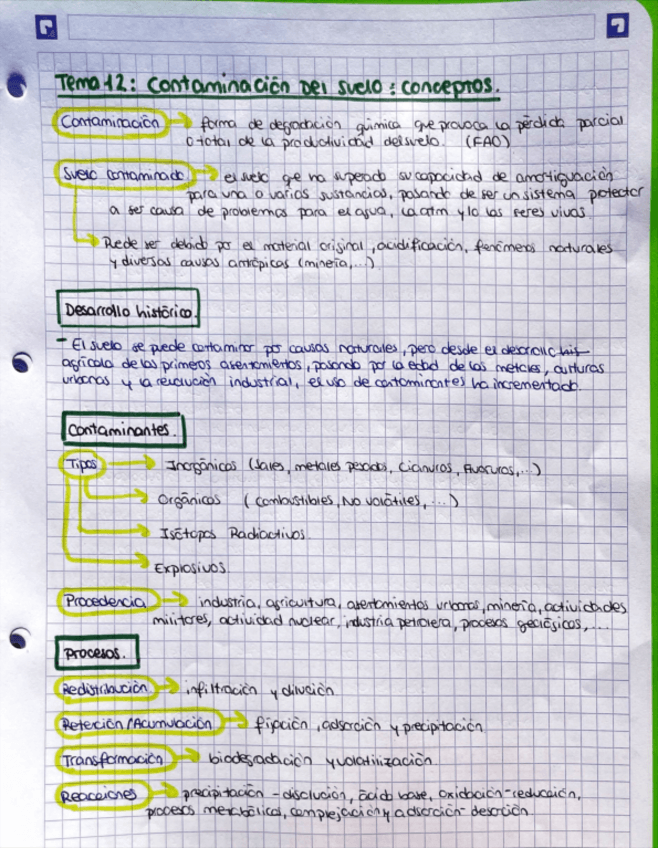 Tema 12: Contaminación del suelo: conceptos.
Contaminación → forma de degradación química que provoca la pérdida parcial
o total de la productividad del suelo. (FAO)
Suelo contaminado → el suelo que ha superado su capacidad de amortiguación
para una o varias sustancias, pasando de ser un sistema protector
a ser causa de problemas para el agua, la atm y/o los seres vivos.
Puede ser debido por el material original, acidificación, fenómenos naturales
y diversas causas antrópicas (minería,...)
Desarrollo histórico.
- El suelo se puede contaminar por causas naturales, pero desde el desarrollo
agrícola de los primeros asentamientos, pasando por la edad de los metales, culturas
urbanas y la revolución industrial, el uso de contaminantes ha incrementado.
Contaminantes.
Tipos → Inorgánicos (Sales, metales pesados, Cianuros, Fluoruros,...)
Orgánicos (Combustibles, No volátiles, ...)
Isótopos Radiactivos.
Explosivos.
Procedencia → industria, agricultura, asentamientos urbanos, minería, actividades
militares, actividad nuclear, industria petrolera, procesos geológicos,...
Procesos.
Redistribución → infiltración y dilución.
Retención/Acumulación → fijación, adsorción y precipitación
Transformación → biodegradación y volatilización.
Reacciones → precipitación - disolución, ácido base, oxidación-reducción,
procesos metabólicos, complejación y adsorción-desorción.